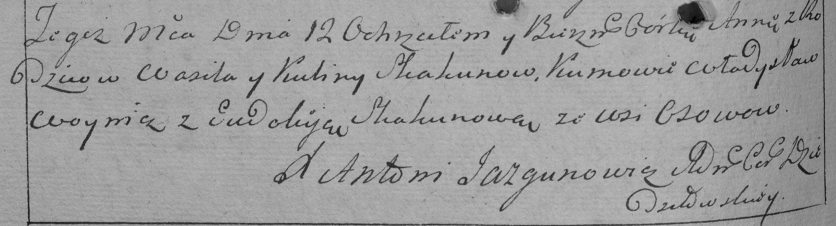 Tegoż Mca Dnia 12 Ochrzciłem y Birzm Córkę Annę z Ro
Dzicow Wasila y Kuliny Skakunow, Kumowie Władysław
Woynicz z Eudokiją Skakunową ze wsi Osowow.
X Antoni Jazgunowicz